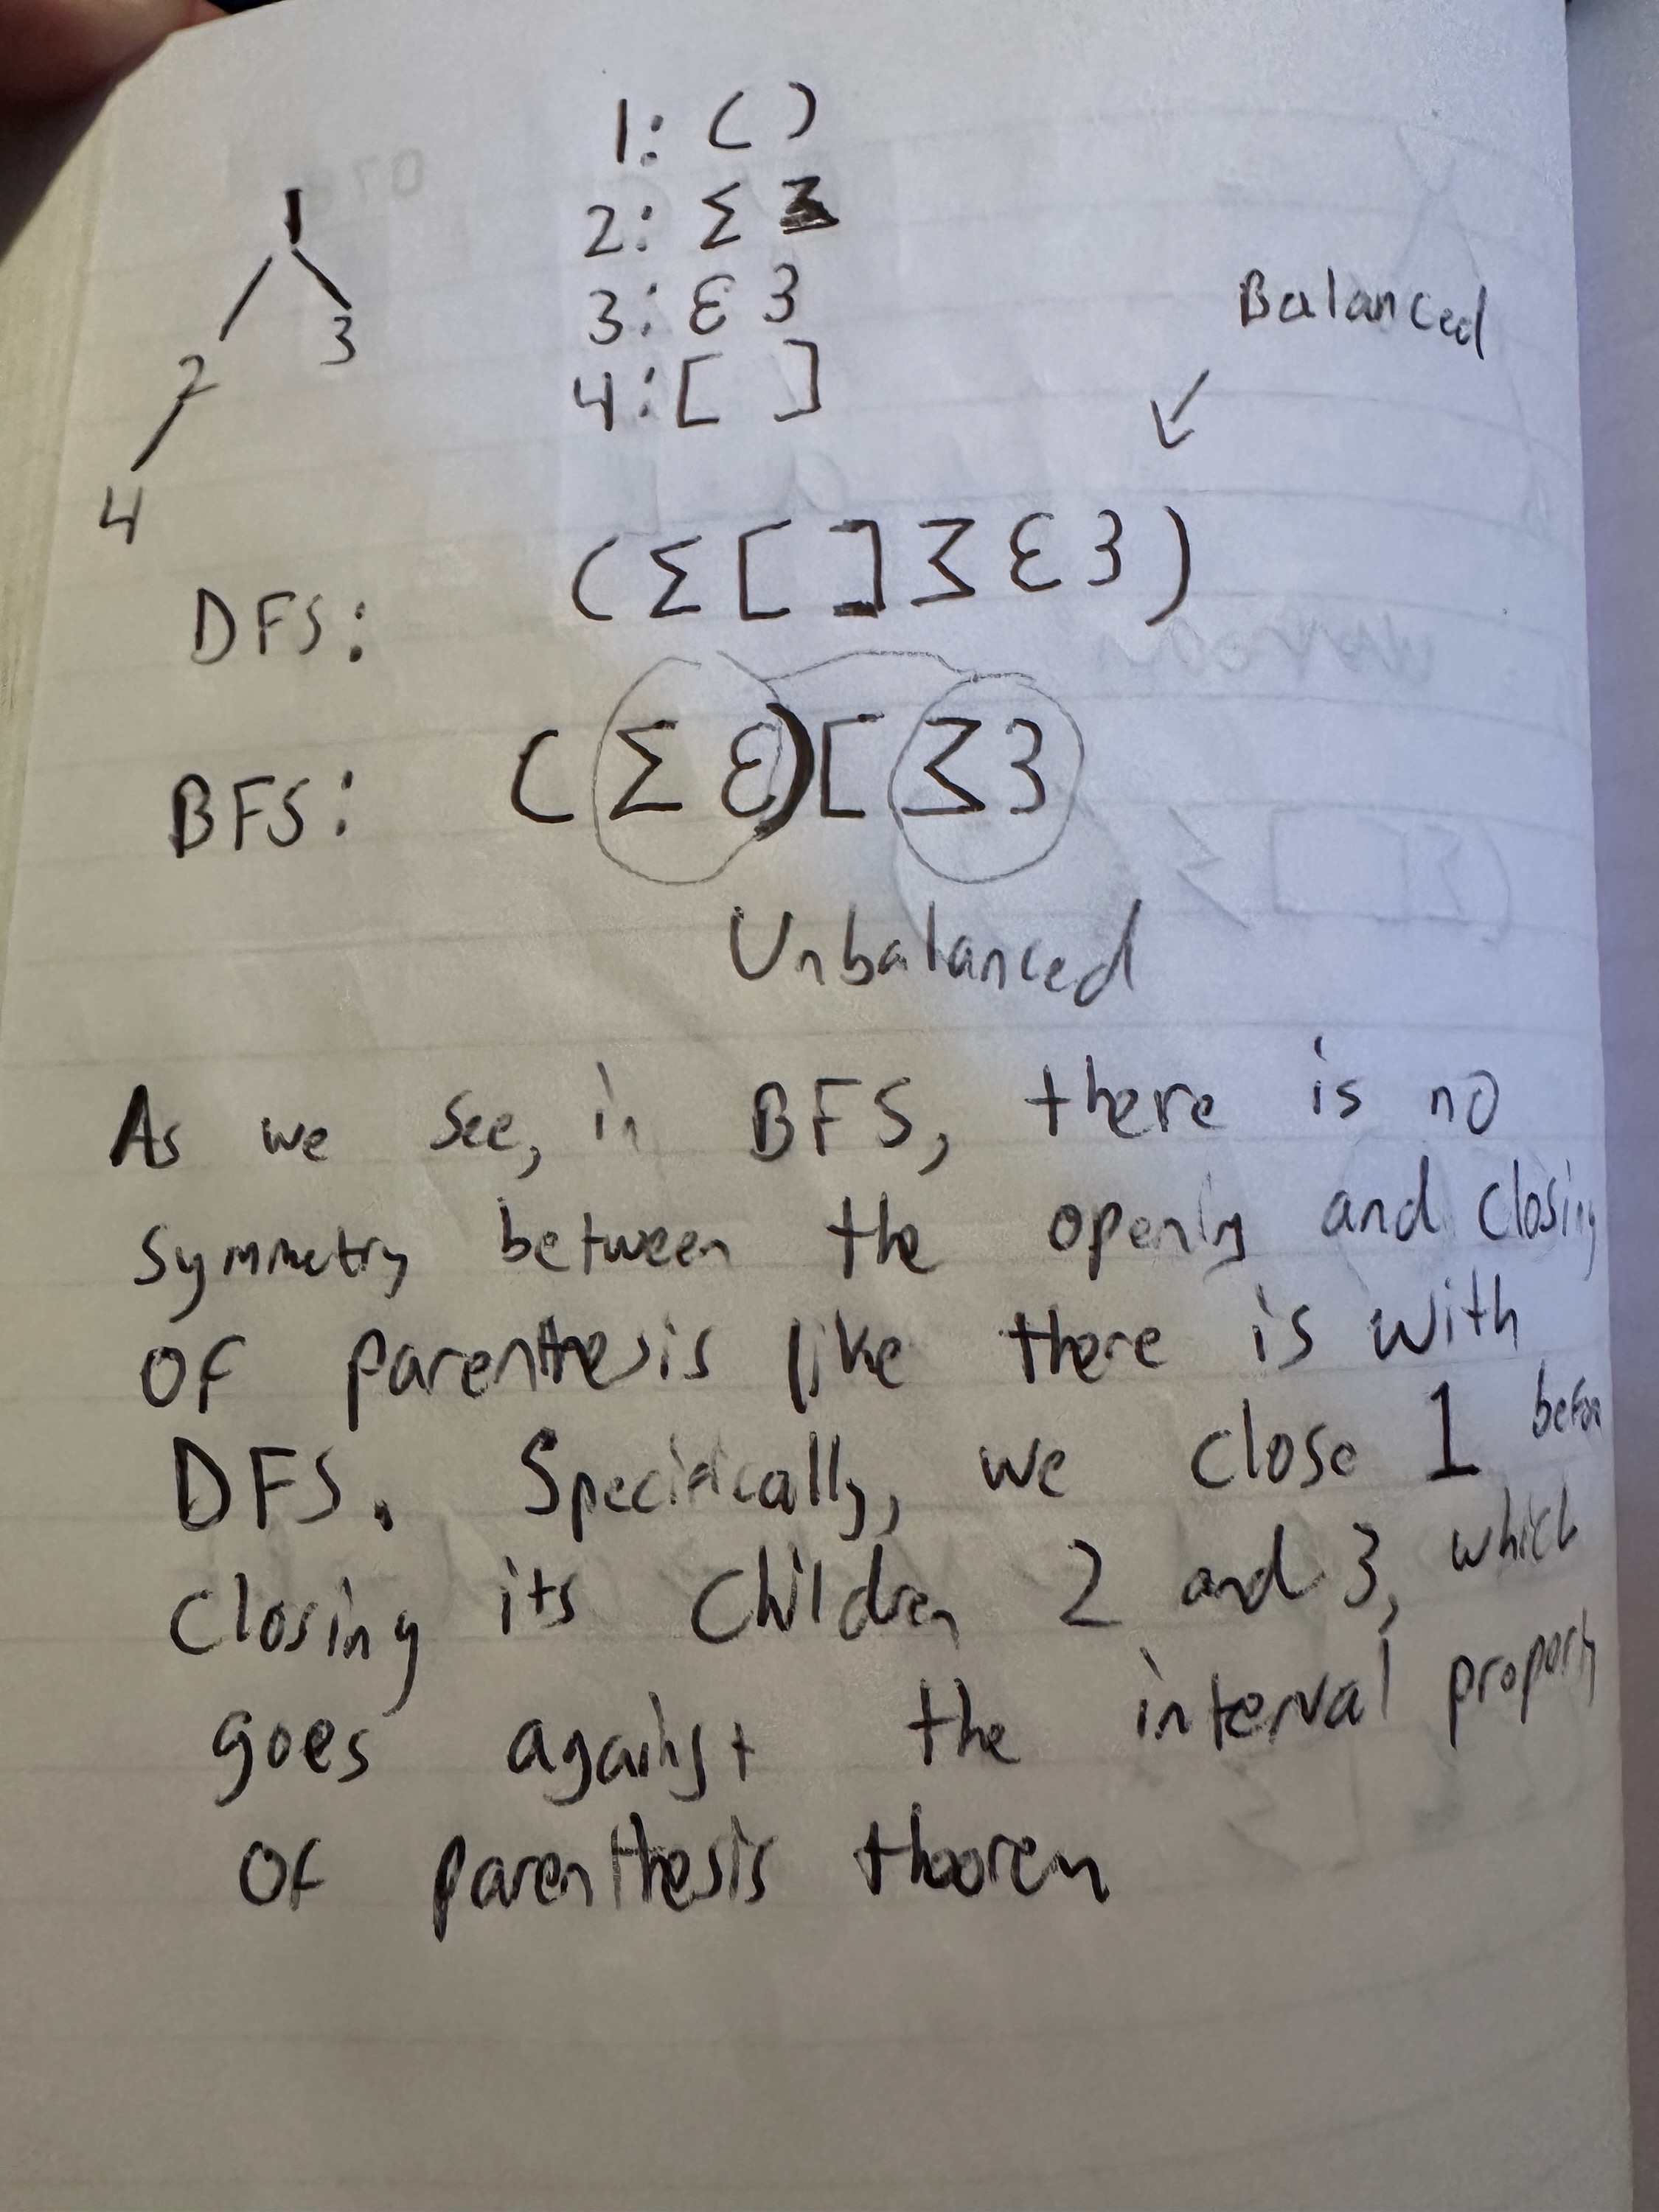 1: ( )
2: Σ 3
3: ε 3
4: [ ]
1
2
3
4
Balanced
DFS: (Σ[]3ε3)
BFS: (Σε)[33
Unbalanced
As we see, in BFS, there is no
symmetry between the opening and closing
of parenthesis like there is with
DFS. Specifically, we close 1 before
closing its children 2 and 3, which
goes against the interval property
of parenthesis theorem